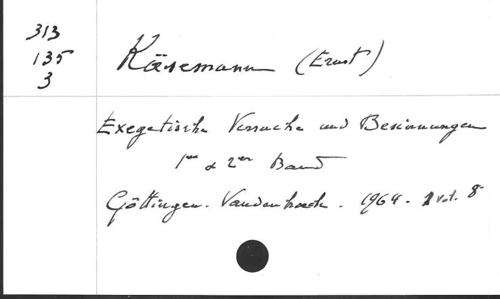 313
135
3
Käsemann (Ernst)
Exegetische Versuche und Besinnungen
1er & 2er Band
Göttingen. Vandenhoeck. 1964. 1 vol. 8°